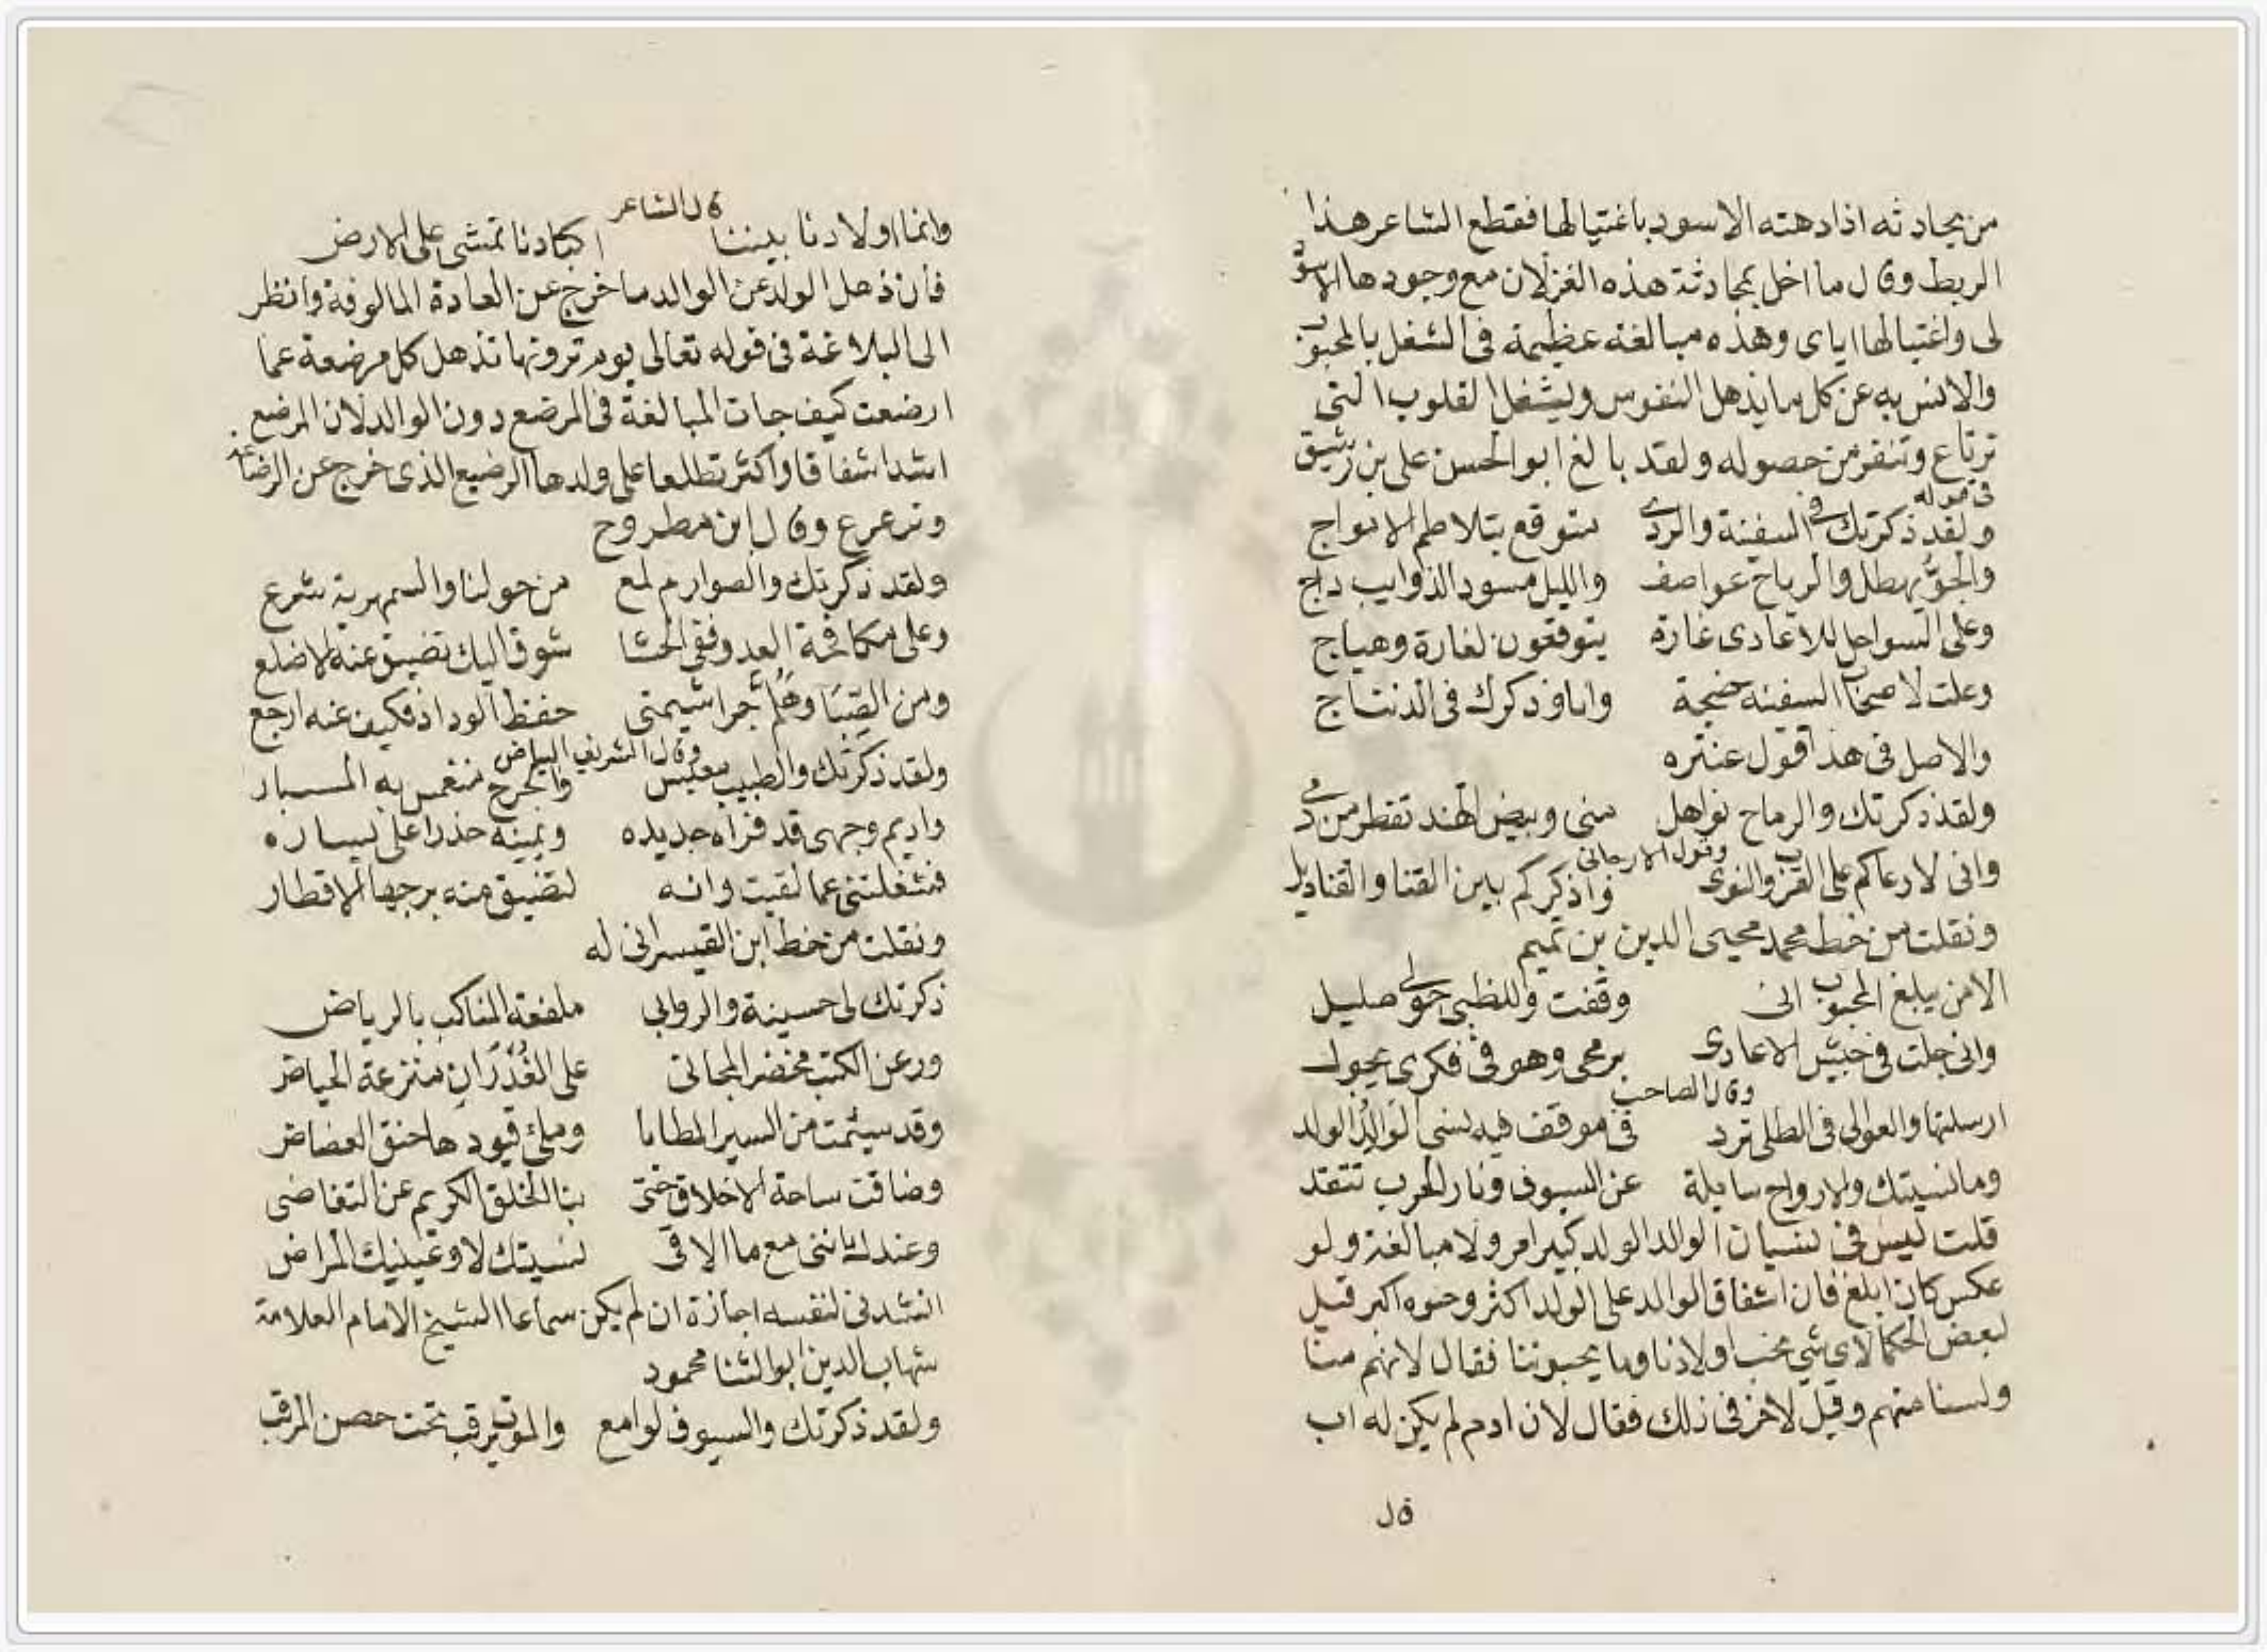 من يحادثه اذا دهته الاسود باغتيالها فقطع الشاعر هذا
الربط وقال ما اخل بمحادثة هذه الغزلان مع وجود هذا الاسود
لى واغتيالها اياى وهذه مبالغة عظيمة فى الشغل بالمحبوب
والانس به عن كل ما يذهل النفوس ويشغل القلوب التى
ترتاع وتنفر من حصوله ولقد بالغ ابو الحسن على بن رشيق
فى قوله
ولقد ذكرتك فى السفينة والردى متوقع بتلاطم الامواج
والجو يهطل والرياح عواصف والليل مسود الذوايب داج
وعلى السواحل للاعادى غارة يتوقعون لغارة وهياج
وعلت لاصحاب السفينة ضجة وانا وذكرك فى الذ تناج
والاصل فى هذا قول عنتره
ولقد ذكرتك والرماح نواهل منى وبيض الهند تقطر من دمى
وقول الارجانى
وانى لارعاكم على القرب والنوى واذكركم بين القنا والقنابل
ونقلت من خط محمد محيى الدين بن تميم
الا من يبلغ المحبوب انى وقفت وللظبى حولى صليل
وانى جلت فى جيش الاعادى برمحى وهو فى فكرى يجول
وقال الصاحب
ارسلتها والعوالى فى الطلى ترد فى موقف فيه ينسى الوالد الولد
وما نسيتك والارواح سايلة عن السيوف ونار الحرب تتقد
قلت ليس فى نسيان الوالد الولد كبير امر ولا مبالغة ولو
عكس كان ابلغ فان اشفاق الوالد على الولد اكثر وحنوه اكبر قيل
لبعض الحكما لاى شى نحب اولادنا وما يحبوننا فقال لانهم منا
ولسنا منهم وقيل لاخر فى ذلك فقال لان ادم لم يكن له اب
قال
قال الشاعر
وانما اولادنا بيننا اكبادنا تمشى على الارض
فان ذهل الولد عن الوالد ما خرج عن العادة المالوفة وانظر
الى البلاغة فى قوله تعالى يوم ترونها تذهل كل مرضعة عما
ارضعت كيف جات المبالغة فى المرضع دون الوالد لان المرضع
اشد اشفاقا واكثر تطلعا على ولدها الرضيع الذى خرج عن الرضاعة
وترعرع وقال ابن مطروح
ولقد ذكرتك والصوارم لمع من حولنا والسمهرية شرع
وعلى مكافحة العدو ففى الحشا شوق اليك تضيق عنه الاضلع
ومن الصبا وهلم جرا شيمتى حفظ الوداد فكيف عنه ارجع
وقال الشريف البياضى
ولقد ذكرتك والطبيب معبس والجرح منغمس به المسبار
واديم وجهى قد فراه حديده ويمينه حذرا على يساره
فشغلتنى عما لقيت وانه لتضيق منه برحبها الاقطار
ونقلت من خط ابن القيسرانى له
ذكرتك لى حسينة والروابي ملفعة المناكب بالرياض
ورعن الكتب مخضر المجانى على الغدران منزعة الحياض
وقد سيئمت من السير المطايا وملئ قيودها حنق العضاض
وضاقت ساحة الاخلاق حتى بنا الخلق الكريم عن التغاضى
وعندك اننى مع ما الاقى نسيتك لا وعينيك المراض
انشدنى لنفسه اجازة ان لم يكن سماعا الشيخ الامام العلامة
شهاب الدين ابو الثنا محمود
ولقد ذكرتك والسيوف لوامع والموت يرقب تحت حصن المرقب